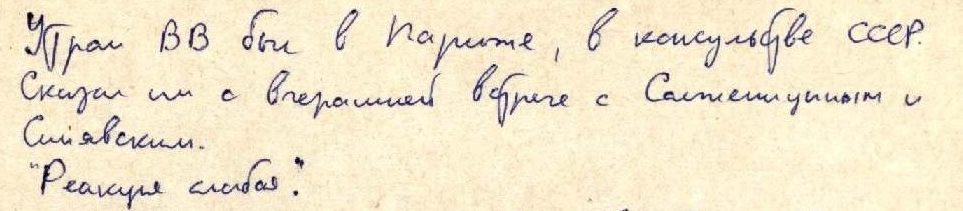 Утром ВВ был в Париже, в консульстве СССР.
Сказал им о вчерашней встрече с Солженицыным и
Синявским.
"Реакция слабая".